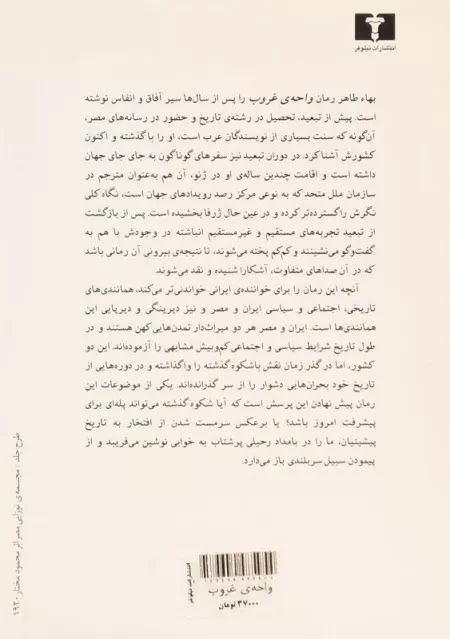 انتشارات نیلوفر
بهاء طاهر رمان واحه‌ی غروب را پس از سال‌ها سیر آفاق و انفاس نوشته
است. پیش از تبعید، تحصیل در رشته‌ی تاریخ و حضور در رسانه‌های مصر،
آن‌گونه که سنت بسیاری از نویسندگان عرب است، او را با گذشته و اکنون
کشورش آشنا کرد. در دوران تبعید نیز سفرهای گوناگون به جای جای جهان
داشته است و اقامت چندین ساله‌ی او در ژنو، آن هم به‌عنوان مترجم در
سازمان ملل متحد که به نوعی مرکز رصد رویدادهای جهان است، نگاه کلی
نگرش را گسترده‌تر کرده و در عین حال ژرفا بخشیده است. پس از بازگشت
از تبعید تجربه‌های مستقیم و غیرمستقیم انباشته در وجودش با هم به
گفت‌وگو می‌نشینند و کم‌کم پخته می‌شوند، تا نتیجه‌ی بیرونی آن رمانی باشد
که در آن صداهای متفاوت، آشکارا شنیده و نقد می‌شوند.
آنچه این رمان را برای خواننده‌ی ایرانی خواندنی‌تر می‌کند، همانندی‌های
تاریخی، اجتماعی و سیاسی ایران و مصر و نیز دیرینگی و دیرپایی این
همانندی‌ها است. ایران و مصر هر دو میراث‌دار تمدن‌هایی کهن هستند و در
طول تاریخ شرایط سیاسی و اجتماعی کم‌وبیش مشابهی را آزموده‌اند. این دو
کشور، اما در گذر زمان نقش باشکوه گذشته را واگذاشته و در دوره‌هایی از
تاریخ خود بحران‌هایی دشوار را از سر گذرانده‌اند. یکی از موضوعات این
رمان پیش نهادن این پرسش است که آیا شکوه گذشته می‌تواند پله‌ای برای
پیشرفت امروز باشد؟ یا برعکس سرمست شدن از افتخار به تاریخ
پیشینیان، ما را در بامداد رحیلی پرشتاب به خوابی نوشین می‌فریبد و از
پیمودن سبیل سربلندی باز می‌دارد.
طرح جلد: مجسمه‌ی نوزایی مصر اثر محمود مختار ۱۹۲۰
انتشارات نیلوفر
واحه‌ی غروب
۳۷۰۰۰ تومان